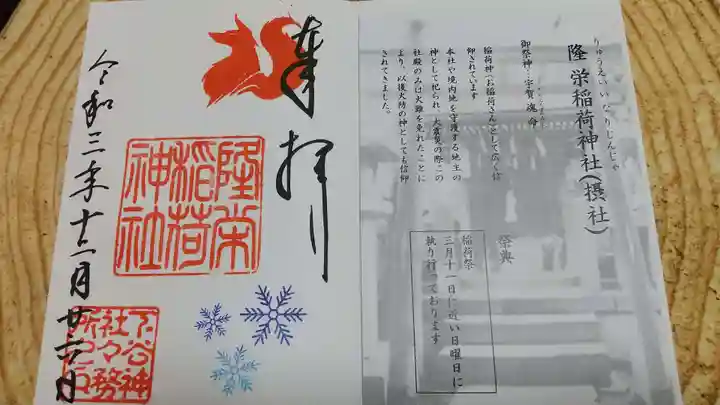 りゅうえいいなりじんじゃ
隆栄稲荷神社(摂社)
御祭神…宇賀魂命
稲荷神(お稲荷さん)として広く信
仰されています
本社や境内地を守護する地主の
神として祀られ、大震災の際この
社殿のみは火難を免れたことに
より、以後火防の神としても信仰
されてきました。
祭典
稲荷祭
三月十一日に近い日曜日に
執り行っております
奉拝
隆栄
稲荷
神社
令和三年十二月廿六日
下谷神
社々務
所之印